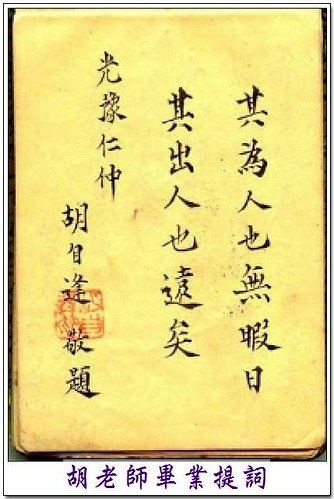 其為人也無暇日
其出人也遠矣
光仁仲
胡自逢敬題
胡老師畢業提詞